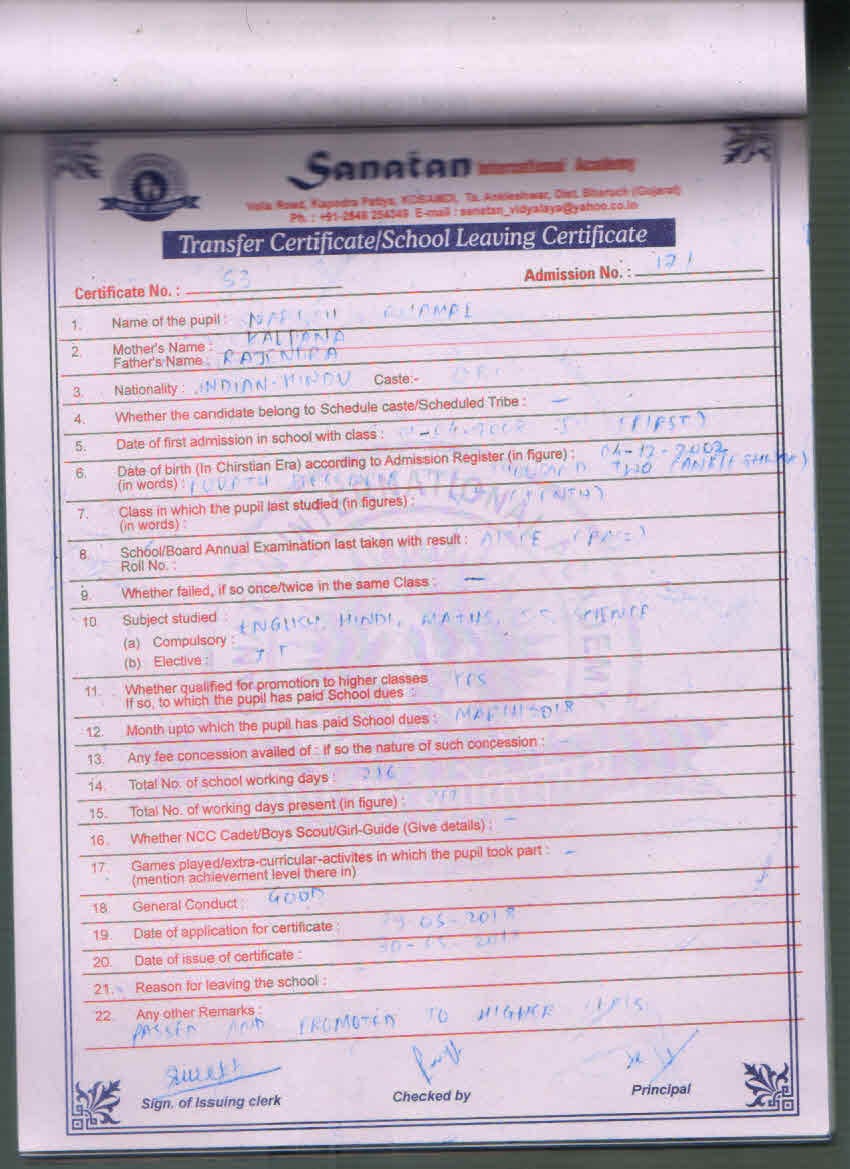 Sanatan International Academy
Valia Road, Kapodra Patiya, KOSAMDI, Ta. Ankleshwar, Dist. Bharuch (Gujarat)
Ph. : +91-2646 254349 E-mail : sanatan_vidyalaya@yahoo.co.in
Transfer Certificate/School Leaving Certificate
Certificate No. : 53 Admission No. : 121
1. Name of the pupil :
2. Mother's Name : KALPANA
Father's Name : RAJENDRA
3. Nationality : INDIAN-HINDU Caste:-
4. Whether the candidate belong to Schedule caste/Scheduled Tribe : –
5. Date of first admission in school with class : (FIRST)
6. Date of birth (In Chirstian Era) according to Admission Register (in figure) : 04-12-2002
(in words) : FOURTH DECEMBER THOUSAND TWO (ANKLESHWAR)
7. Class in which the pupil last studied (in figures) :
(in words) :
8. School/Board Annual Examination last taken with result :
Roll No. :
9. Whether failed, if so once/twice in the same Class : —
10. Subject studied : ENGLISH, HINDI, MATHS, SCIENCE
(a) Compulsory :
(b) Elective : IT
11. Whether qualified for promotion to higher classes YES
If so, to which the pupil has paid School dues :
12. Month upto which the pupil has paid School dues : MARCH 2018
13. Any fee concession availed of : if so the nature of such concession : –
14. Total No. of school working days : 216
15. Total No. of working days present (in figure) :
16. Whether NCC Cadet/Boys Scout/Girl-Guide (Give details) : –
17. Games played/extra-curricular-activites in which the pupil took part : –
(mention achievement level there in)
18. General Conduct : GOOD
19. Date of application for certificate : 29-05-2018
20. Date of issue of certificate : 30-05-2018
21. Reason for leaving the school :
22. Any other Remarks :
PASSED AND PROMOTED TO HIGHER CLASS.
Sign. of Issuing clerk Checked by Principal